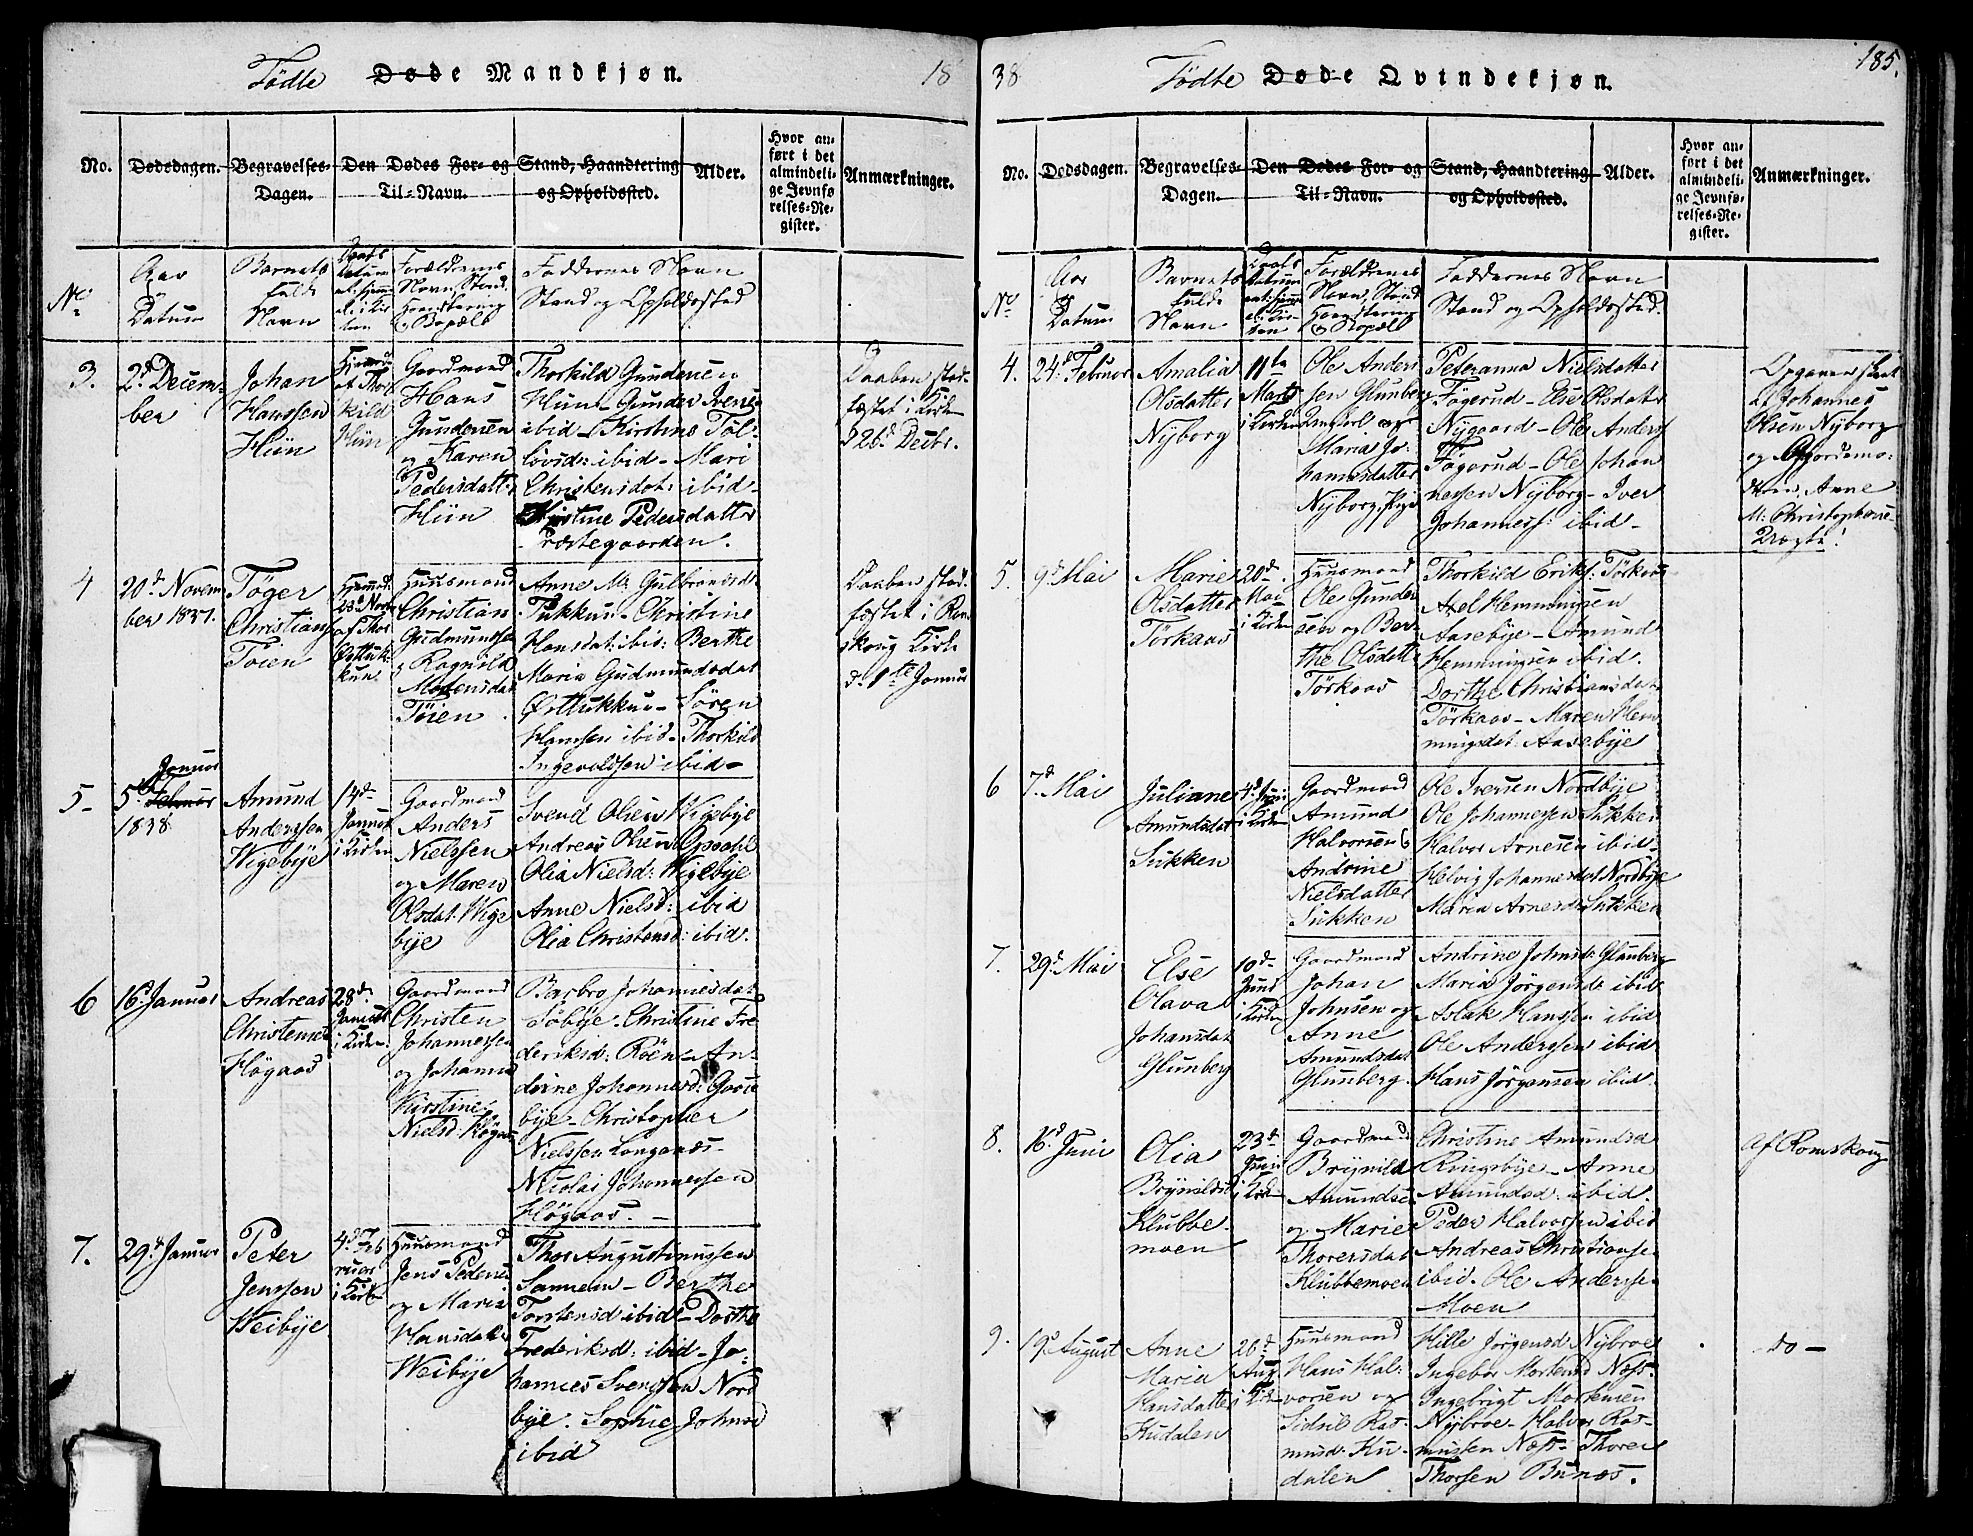 Fødte Døde Mandkjøn. 18
No.
Dødedagen.
Begravelses-
Dagen.
Den Dødes For- og
Til-Navn.
Stand, Haandtering
og Opholdssted.
Alder.
Hvor an-
ført i det
almindeli-
ge Jevnfø
relses-Re-
gister.
Anmærkninger.
No
Aar
&
Datum
Barnets
fulde
Navn
Daabs
datum
Forældrenes
Navn, Stand,
Haandtering
& Bopæl
Faddernes Navn
Stand og Opholdssted
3.
2d Decem-
ber
Johan
Hanssen
Hün
Hjemmed
af Thor
kild
Hün
Gaardmand
Hans
Gundersen
og Karen
Pedersdatter
Hün
Thorkild Gundersen
Hün - Gunder Ivers
ibid - Kirstine Tol-
løvsd: ibid - Mari
Christensdat: ibid -
Kirstine Pedersdatter
Præstegaarden.
Daaben stad-
fæstet i Kirken
d 26d Decbr.
4
20d Novem
ber 1837.
Töger
Christians
Toien
Hjemmed
af Thor
Huusmand
Christian
Gudmundsen
& Ragnild
Mogensdat
Töien
Anne M: Gulbrandsd:
Tukkun - Christine
Hansdat: ibid: Berthe
Maria Gudmundsdat
Ørttukkun - Sören
Hanssen ibid - Thorkild
Ingevoldssen ibid -
Daaben stad-
fæstet i Rom
skoug Kirke
d. 1te Januar
5-
Januar
5te Februar
1838
Amund
Anderssen
Wigebye
14d
Januar
i Kirken
Gaardmand
Anders
Nielssen
og Maren
Olsdat: Wige
bye
Svend Olsen Wigebye
Andreas Olsen Opsahl
Olia Nielsd: Wigebye
Anne Nielsd: ibid
Olia Christensd: ibid.
6
16d Januar
Andreas
Christensen
Högaas
28d
Januar
i Kirken
Gaardmand
Christen
Johannessen
og Johanne
Kirstine
Nielsd: Högaas
Barbro Johannesdat
Söbye - Christine Fre
deriksd: Röen - An-
drine Johannesd: Gaase
bye - Christopher
Nielssen Langnæs -
Nicolai Johannessen
Högaas. -
7.
29d Januar
Peter
Jenssen
Weibye
4d Feb
ruar
i Kirken
Huusmand
Jens Pedersen
og Maria
Hansdatter
Weibye
Thor Augustinussen
Sannem - Berthe
Torstensd ibid - Dorthe
Frederiksd: ibid - Jo-
hannes Svenssen Nord
bye. Sophie Johnsd
ibid
38 Fødte Døde Qvindekjøn. 185.
No.
Dødsdagen.
Begravelses-
Dagen.
Den Dødes For- og
Til-Navn.
Stand, Haandtering
og Opholdssted.
Alder.
Hvor an-
ført i det
almindeli-
ge Jevnfø-
relses-Re-
gister.
Anmærkninger.
No
Aar
&
Datum
Barnets
fulde
Navn
Daabs
datum
Forældrenes
Navn, Stand
Haandtering
& Bopæl
Faddernes Navn
Stand og Opholdssted.
4.
24d Februar
Amalia
Olsdatter
Nyborg
11te
Marts
i Kirken
Ole Anders
sen Glunberg
Ungkarl og
Maria Jo-
hannesdatter
Nyborg, Pige
Peteranna Nielsdatter
Tögerud - Else Olsdatter
Nygaard - Ole Anders
Tögerud - Ole Johan
nessen Nyborg - Iver
Johanness: ibid -
Opgaven skeet
af Johannes
Olsen Nyborg
og Gjordemo-
deren, Anne
M: Christophersd
Krogti!
5.
9d Mai
Marie
Olsdatter
Törkaas
20d
Mai
i Kirken
Huusmand
Ole Gunder
sen og Ber-
the Olsdatt:
Törkaas
Thorkild Eriks: Törkaas
Axel Hemmingsen
Aasebye - Amund
Hemmingsen ibid.
Dorthe Christiansdat
Törkaas - Maren Hem
mingsdat: Aasebye
6
7d Mai
Juliane
Amundsdat
Sukken
4d Juni
i Kirken
Gaardmand
Amund
Halvorsen &
Andrine
Nielsdatter
Sukken
Ole Iversen Nordbye
Ole Johannessen Sukken
Halvor Arnesen ibid -
Helvig Johannesdat Nordbye
Maria Arnesd: Sukken
7.
29d Mai
Else
Olava
Johansdat
Glunberg
10d
Juni
i Kirken
Gaardmand
Johan
Johnsen og
Anne
Amundsdat
Glunberg
Andrine Johnsd: Glunberg
Maria Jörgensd: ibid
Aslak Hanssen ibid
Ole Anderssen ibid
Hans Jörgensen ibid
8.
16d Juni
Olia
Brynildsd
Klubbe
moen
23d
Juni
i Kirken
Gaardmand
Brynild
Amundsen
og Marie
Thoresdat
Klubbemoen
Christine Amundsd
Ringsbye - Anne
Amundsd: ibid.
Peder Halvorssen ibid
Andreas Christianse-
ibid. Ole Anderse-
Moen
Af Romskoug
9.
19d August
Anne
Maria
Hansdatter
Kudalen
26d
Aug
i Kirken
Huusmand
Hans Hal-
vorsen og
Sidsel Ras-
musd: Ku-
dalen
Hille Jörgensd Nybroe
Ingebor Mortensd Næs -
Ingebrigt Mortensen
Nybroe - Halvor Ras-
mussen Næs - Thorer
Thorsen Bunæs.
do -